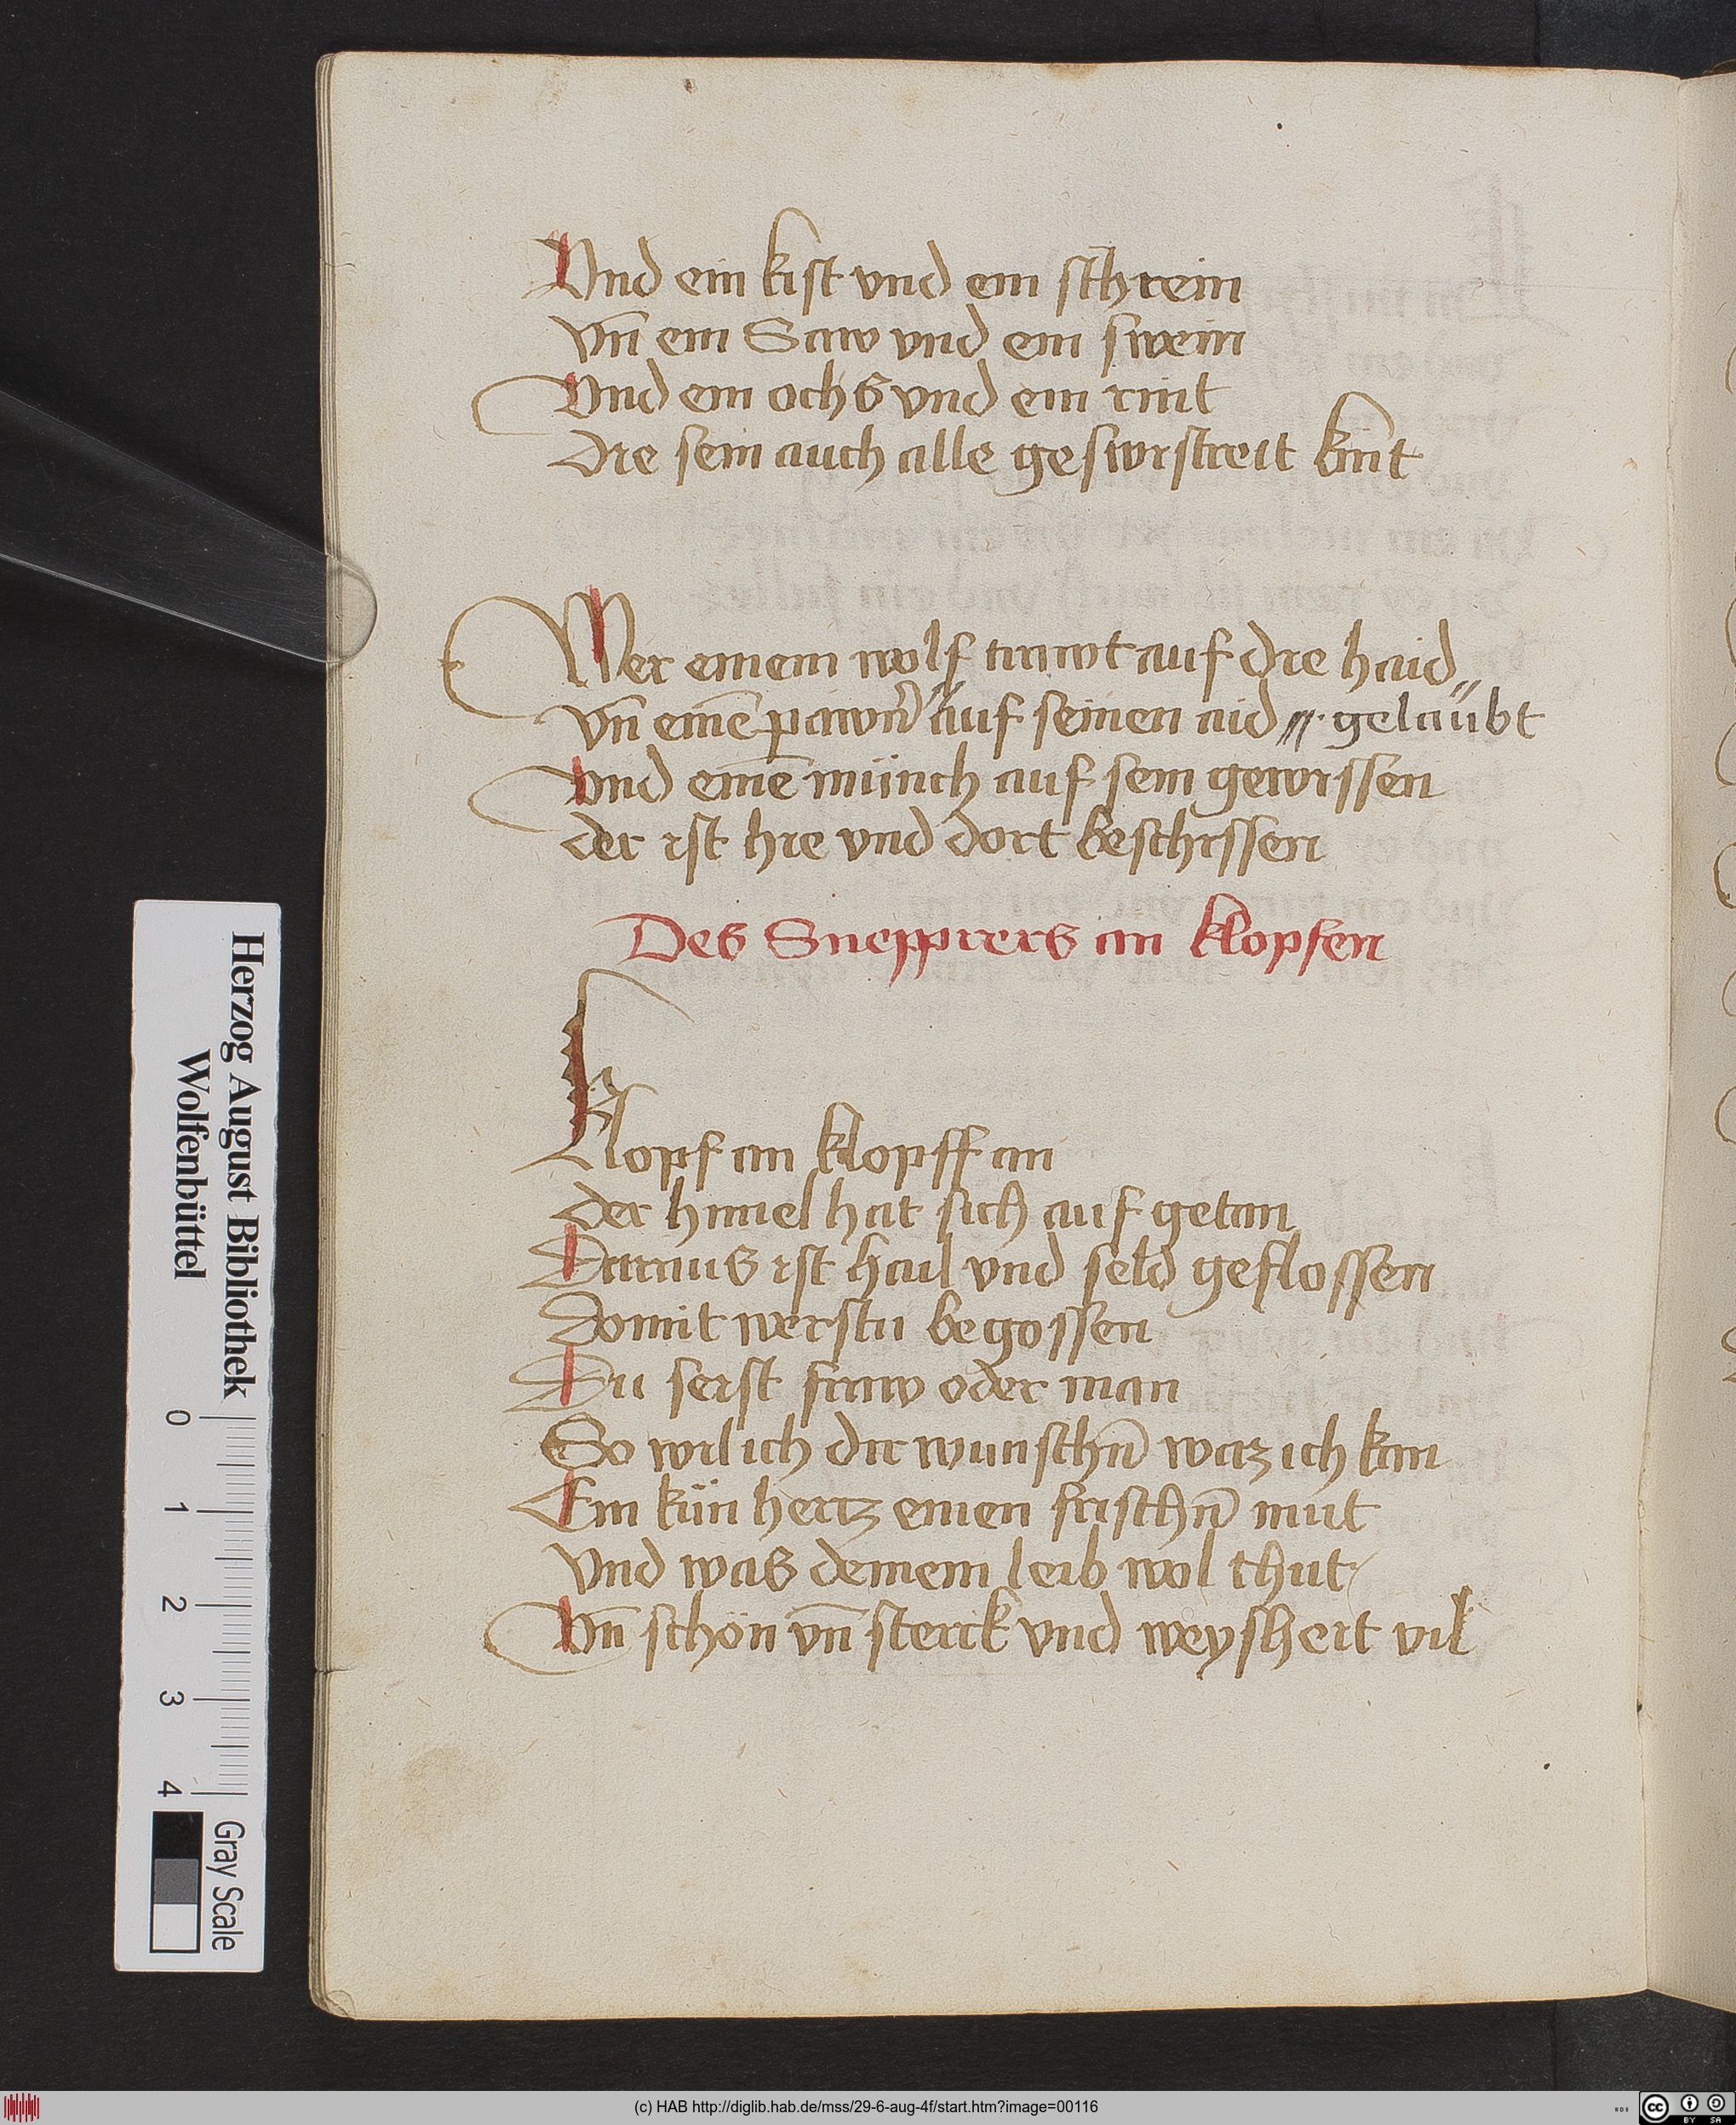 Vnd ein kist vnd ein schrein
Vn̄ ein Saw vnd ein swein
Vnd ein ochs vnd ein rint
Die sein auch alle geswistreit kint
Wer einem wolf trawt auf die haid
Vn̄ einē pawrn̄ auf seinen aid gelaubt
Vnd einē münch auf sein gewissen
der ist hie vnd dort beschissen
Des Sneppers an klopfen
Klopf an klopff an
der himel hat sich auf getan
Daraus ist hail vnd seld geflossen
Domit werstu begossen
Du seist fraw oder man
So wil ich dir wunschn̄ waz ich kan
Ein kün hertz einen frischn̄ mut
Vnd was deinem leib wol thut
Vn̄ schön vn̄ sterck vnd weysheit vil
Herzog August Bibliothek
Wolfenbüttel
0 1 2 3 4
Gray Scale
(c) HAB http://diglib.hab.de/mss/29-6-aug-4f/start.htm?image=00116
cc BY SA